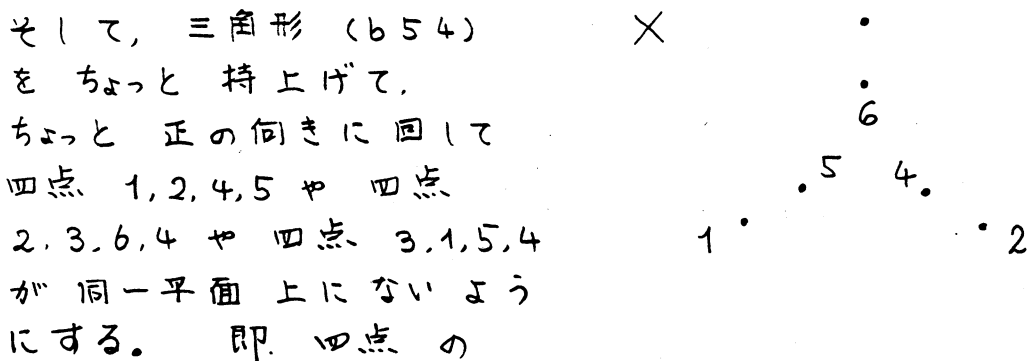 そして, 三角形 (654)
を ちょっと 持上げて.
ちょっと 正の向きに 回して
四点 1,2,4,5 や 四点
2.3.6.4 や 四点 3.1.5.4
が 同一平面 上にないよう
にする。 即. 四点 の
×
6
5 4
1 2